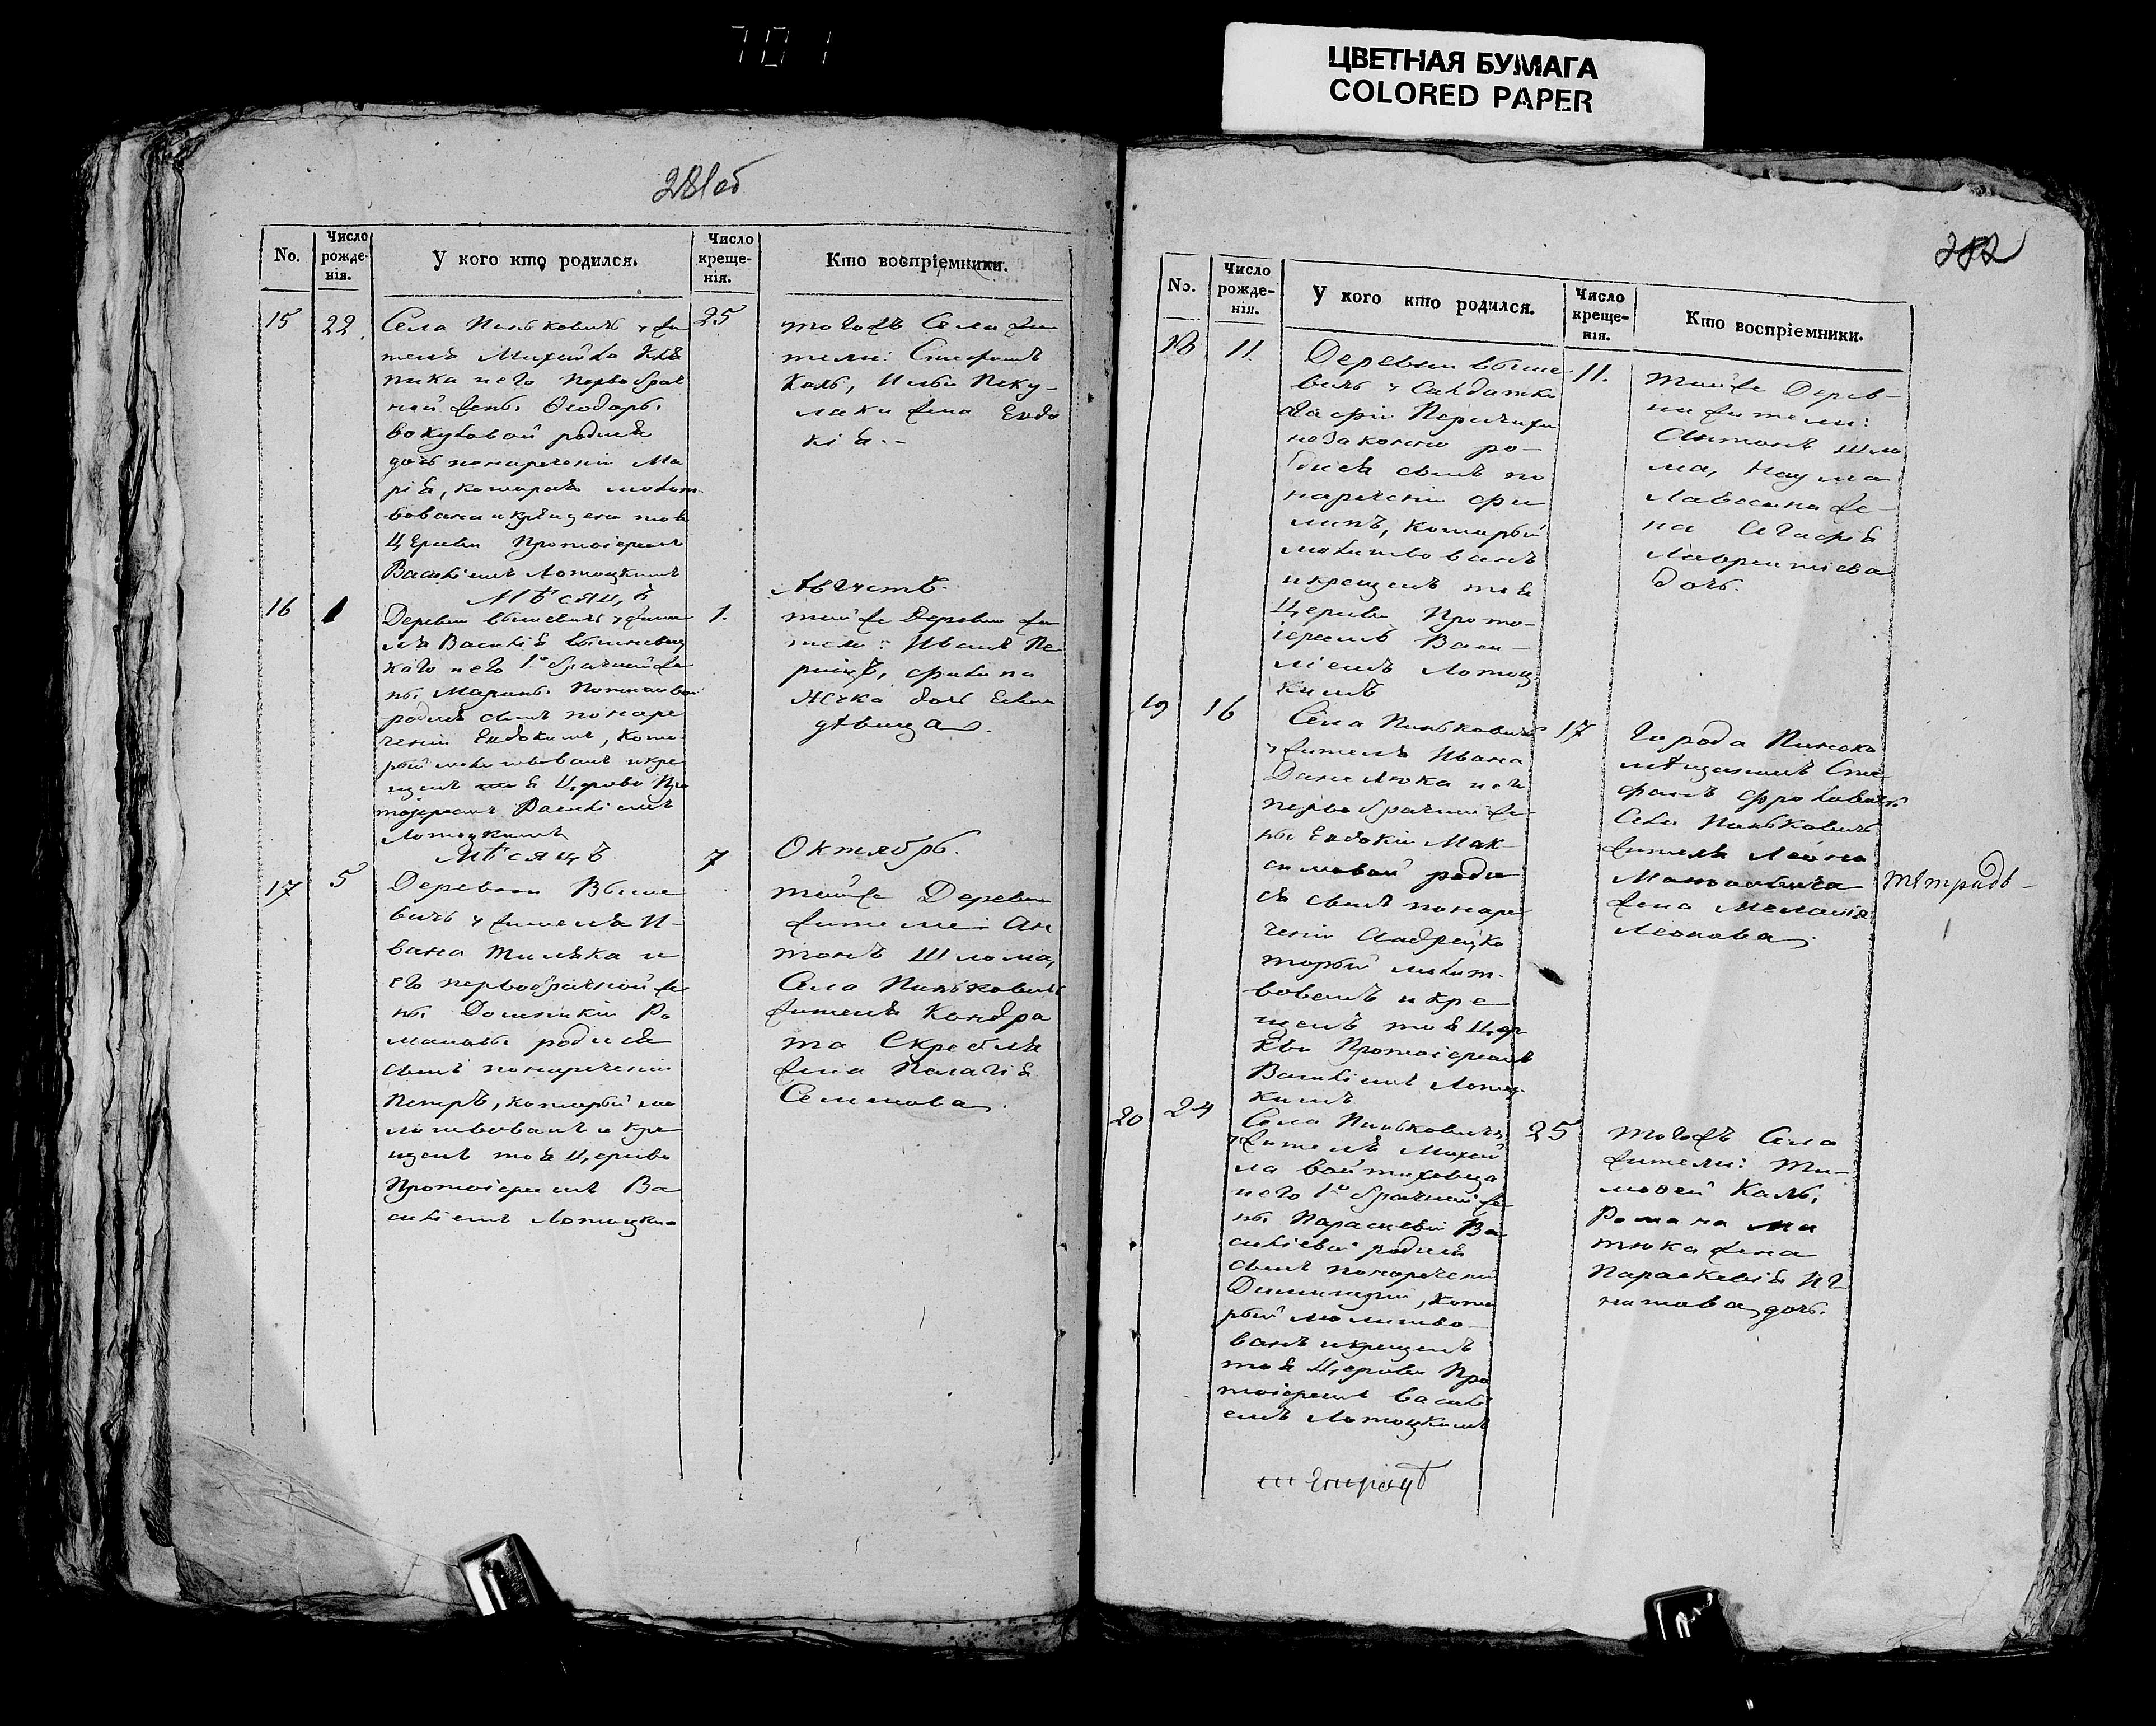 701
ЦВЕТНАЯ БУМАГА
COLORED PAPER
281об
No.
Число рожде-нія.
У кого кто родился.
Число креще-нія.
Кто воспріемники.
15
22
Села Пиньковичъ жи
теля Михайла
пика и его первобрач
ной жены Ѳеодоры
родися
дочь по нареченіи Ма
рія, которая молит
вована и крещена тоя
Церкви Протоіереемъ
Василіемъ Лотоцкимъ
25
того жъ Села жи
тели: Стефанъ
Каль, Ильи Пеку-
лаки жена Евдо
кія.-
Мѣсяцъ
Августъ.
16
1
Деревни Вышевичъ у жите
ля Василія Вышневец
каго и его 1о брачной же
ны Марины
родися сынъ по наре
ченіи Евдокимъ, кото-
рый молитвованъ и кре
щенъ тоя Церкви Про
тоіереемъ Василіемъ
Лотоцкимъ
1.
той же Деревни жи
тели: Иванъ
Филипа
дочь
дѣвица.
Мѣсяцъ
Октябрь.
17
5
Деревни Выше
вичъ у жителя И-
вана Тиляка и
его первобрачной же
ны Домникіи Ро
мановы родися
сынъ по нареченіи
Петръ, который мо
литвованъ и кре
щенъ тоя Церкви
Протоіереемъ Ва
силіемъ Лотоцким
7
той же Деревни
жители: Ан
тонъ Шлома,
Села Пиньковичъ
жителя Кондра
та Скребля
жена Палагія
Семенова.
282
No.
Число рожде-нія.
У кого кто родился.
Число креще-нія.
Кто воспріемники.
18
11.
Деревни Выше
вичъ у Салдатки
Агафіи
незаконно ро-
дися сынъ по
нареченіи Фи
липъ, который
молитвованъ
и крещенъ тоя
Церкви Прото-
іереемъ Васи-
ліемъ Лотоц
кимъ
11.
той же Дерев-
ни жители:
Антонъ Шло
ма, Наума
же-
на Агафія
Лаврентіева
дочь.
19
16
Села Пиньковичъ
у жителя Ивана
Данилюка и его
первобрачной же-
ны Евдокіи Мак-
симовой роди
ся сынъ по наре
ченіи Андрей, ко
торый молит-
вованъ и кре-
щенъ тоя Цер
кви Протоіереемъ
Василіемъ Лотоц-
кимъ
17
Города Пинска
мѣщанинъ Сте
фанъ
Села Пиньковичъ
жителя Леона
жена Меланія
Леонова.
тѣтрадь-
20
24
Села Пиньковичъ
у жителя Михай
ла Войтиховца
и его 1о брачной же
ны Параскевіи Ва
силіевой родися
сынъ по нареченіи
Димитрій, кото
рый молитво-
ванъ и крещенъ
тоя Церкви Про
тоіереемъ Василі
емъ Лотоцкимъ
25
того жъ Села
жители: Ти-
мофей Каль,
Романа Ма
тюка жена
Параскевія Иг
натова дочь.